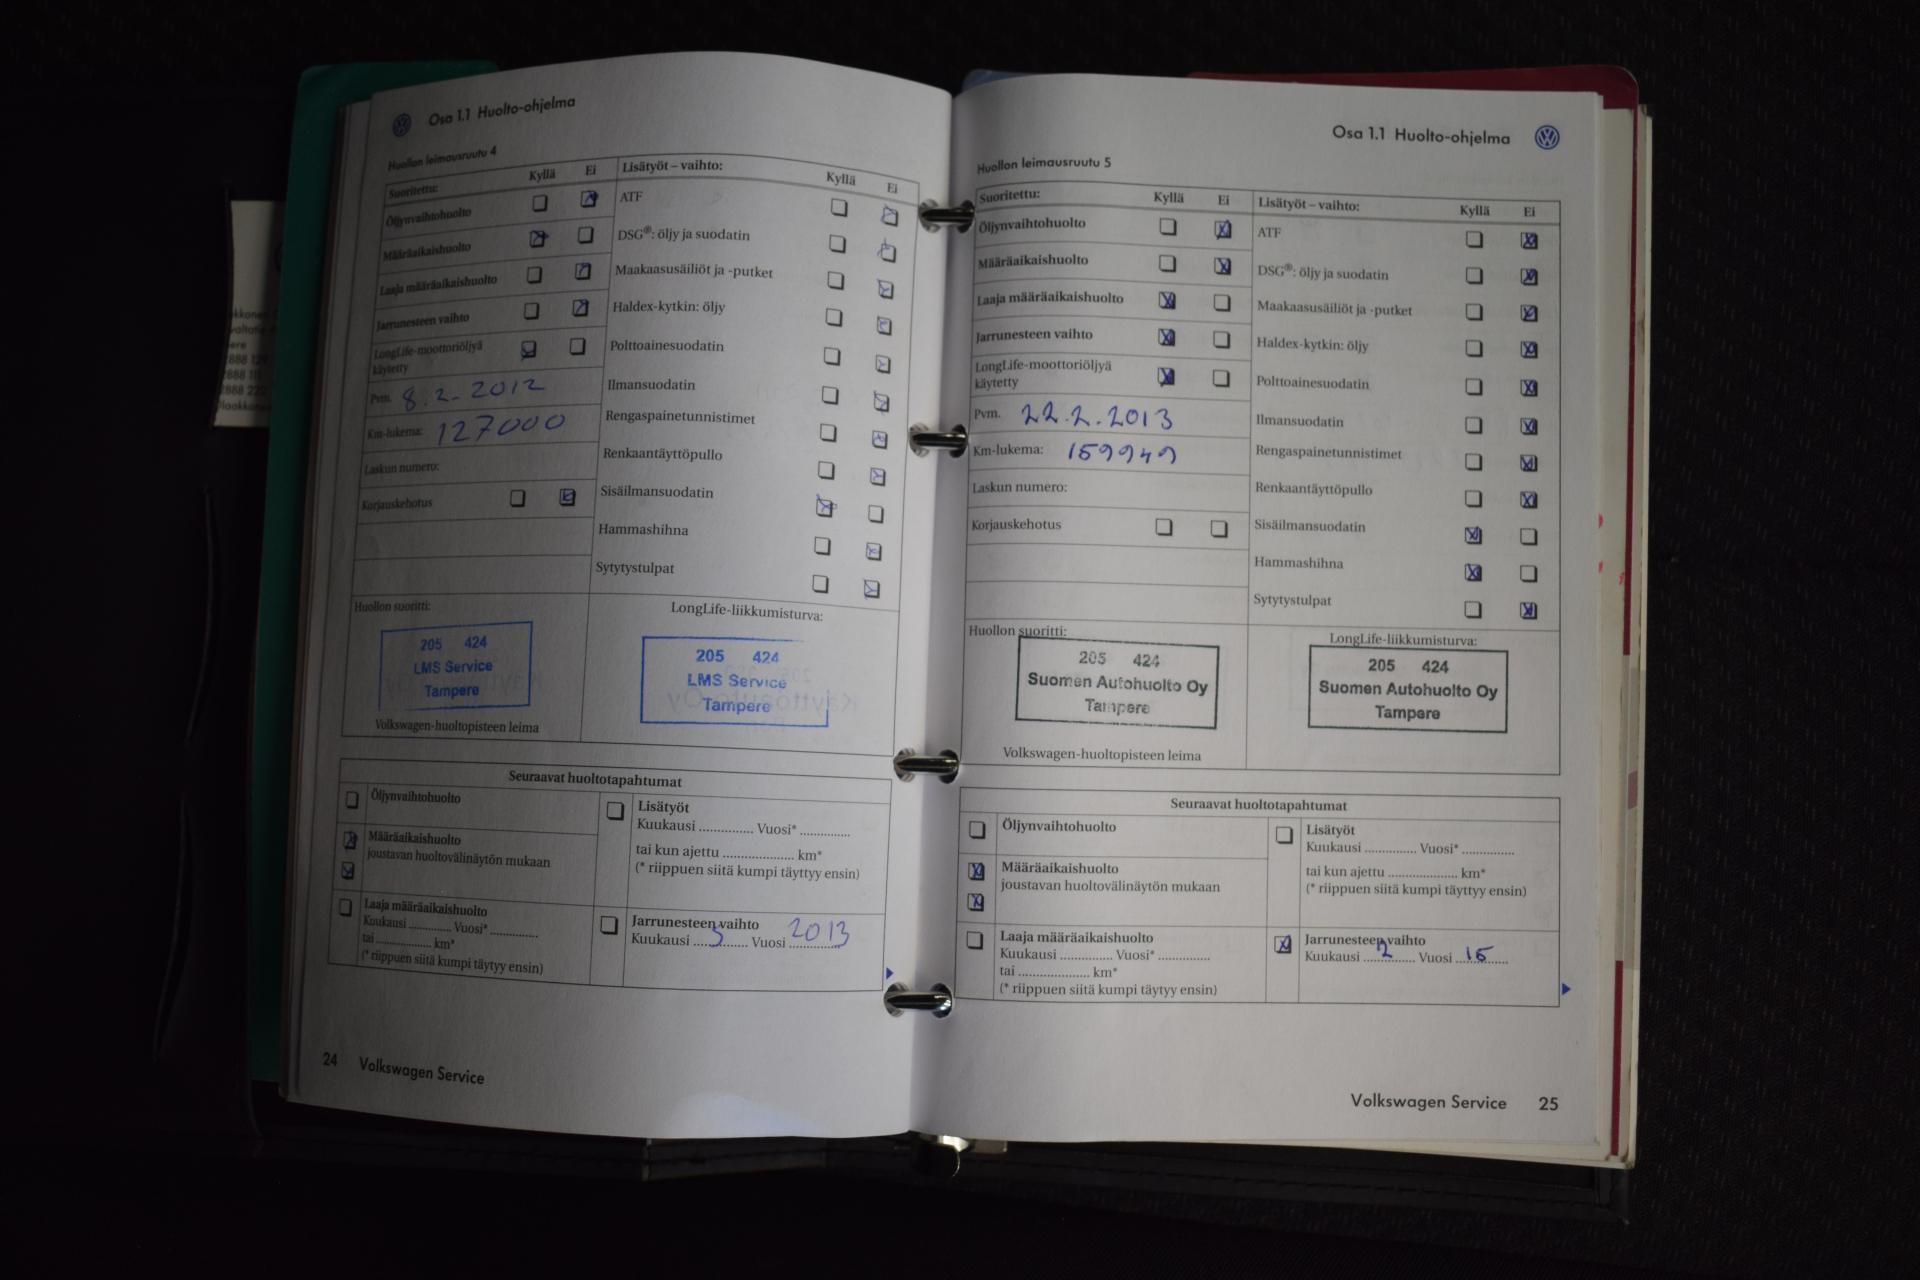 Osa 1.1 Huolto-ohjelma
Huollon leimausruutu 4
Suoritettu: Kyllä Ei
Öljynvaihtohuolto
Määräaikaishuolto
Laaja määräaikaishuolto
Jarrunesteen vaihto
LongLife-moottoriöljyä
käytetty
Pvm. 8.2.2012
Km-lukema: 127000
Laskun numero:
Korjauskehotus
Lisätyöt – vaihto: Kyllä Ei
ATF
DSG®: öljy ja suodatin
Maakaasusäiliöt ja -putket
Haldex-kytkin: öljy
Polttoainesuodatin
Ilmansuodatin
Rengaspainetunnistimet
Renkaantäyttöpullo
Sisäilmansuodatin
Hammashihna
Sytytystulpat
Huollon suoritti:
205 424
LMS Service
Tampere
Volkswagen-huoltopisteen leima
LongLife-liikkumisturva:
205 424
LMS Service
Tampere
Seuraavat huoltotapahtumat
Öljynvaihtohuolto
Määräaikaishuolto
joustavan huoltovälinäytön mukaan
Laaja määräaikaishuolto
Kuukausi ............ Vuosi* ............
tai ............... km*
(* riippuen siitä kumpi täytyy ensin)
Lisätyöt
Kuukausi .............. Vuosi* .............
tai kun ajettu .................... km*
(* riippuen siitä kumpi täyttyy ensin)
Jarrunesteen vaihto
Kuukausi ....3...... Vuosi 2013
24 Volkswagen Service
Osa 1.1 Huolto-ohjelma
Huollon leimausruutu 5
Suoritettu: Kyllä Ei
Öljynvaihtohuolto
Määräaikaishuolto
Laaja määräaikaishuolto
Jarrunesteen vaihto
LongLife-moottoriöljyä
käytetty
Pvm. 22.2.2013
Km-lukema: 159949
Laskun numero:
Korjauskehotus
Lisätyöt – vaihto: Kyllä Ei
ATF
DSG®: öljy ja suodatin
Maakaasusäiliöt ja -putket
Haldex-kytkin: öljy
Polttoainesuodatin
Ilmansuodatin
Rengaspainetunnistimet
Renkaantäyttöpullo
Sisäilmansuodatin
Hammashihna
Sytytystulpat
Huollon suoritti:
205 424
Suomen Autohuolto Oy
Tampere
Volkswagen-huoltopisteen leima
LongLife-liikkumisturva:
205 424
Suomen Autohuolto Oy
Tampere
Seuraavat huoltotapahtumat
Öljynvaihtohuolto
Määräaikaishuolto
joustavan huoltovälinäytön mukaan
Laaja määräaikaishuolto
Kuukausi .............. Vuosi* .............
tai .................... km*
(* riippuen siitä kumpi täytyy ensin)
Lisätyöt
Kuukausi .............. Vuosi* ..............
tai kun ajettu .................... km*
(* riippuen siitä kumpi täyttyy ensin)
Jarrunesteen vaihto
Kuukausi ....2...... Vuosi 15
Volkswagen Service 25